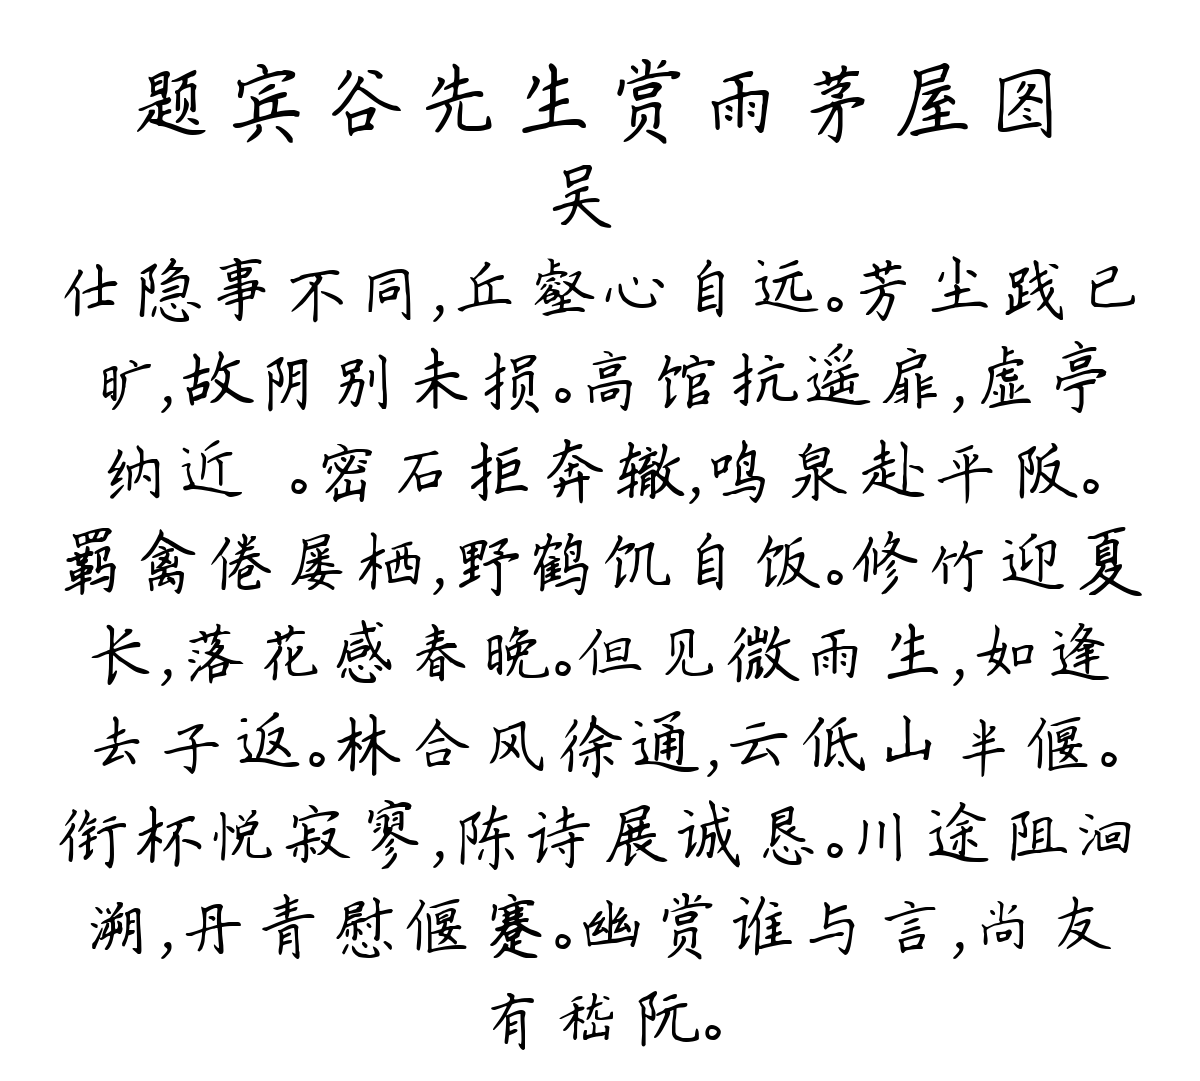 题宾谷先生赏雨茅屋图
吴
仕隐事不同,丘壑心自远。芳尘践已
旷,故阴别未损。高馆抗遥扉,虚亭
纳近 。密石拒奔辙,鸣泉赴平阪。
羁禽倦屡栖,野鹤饥自饭。修竹迎夏
长,落花感春晚。但见微雨生,如逢
去子返。林合风徐通,云低山半偃。
衔杯悦寂寥,陈诗展诚恳。川途阻洄
溯,丹青慰偃蹇。幽赏谁与言,尚友
有嵇阮。